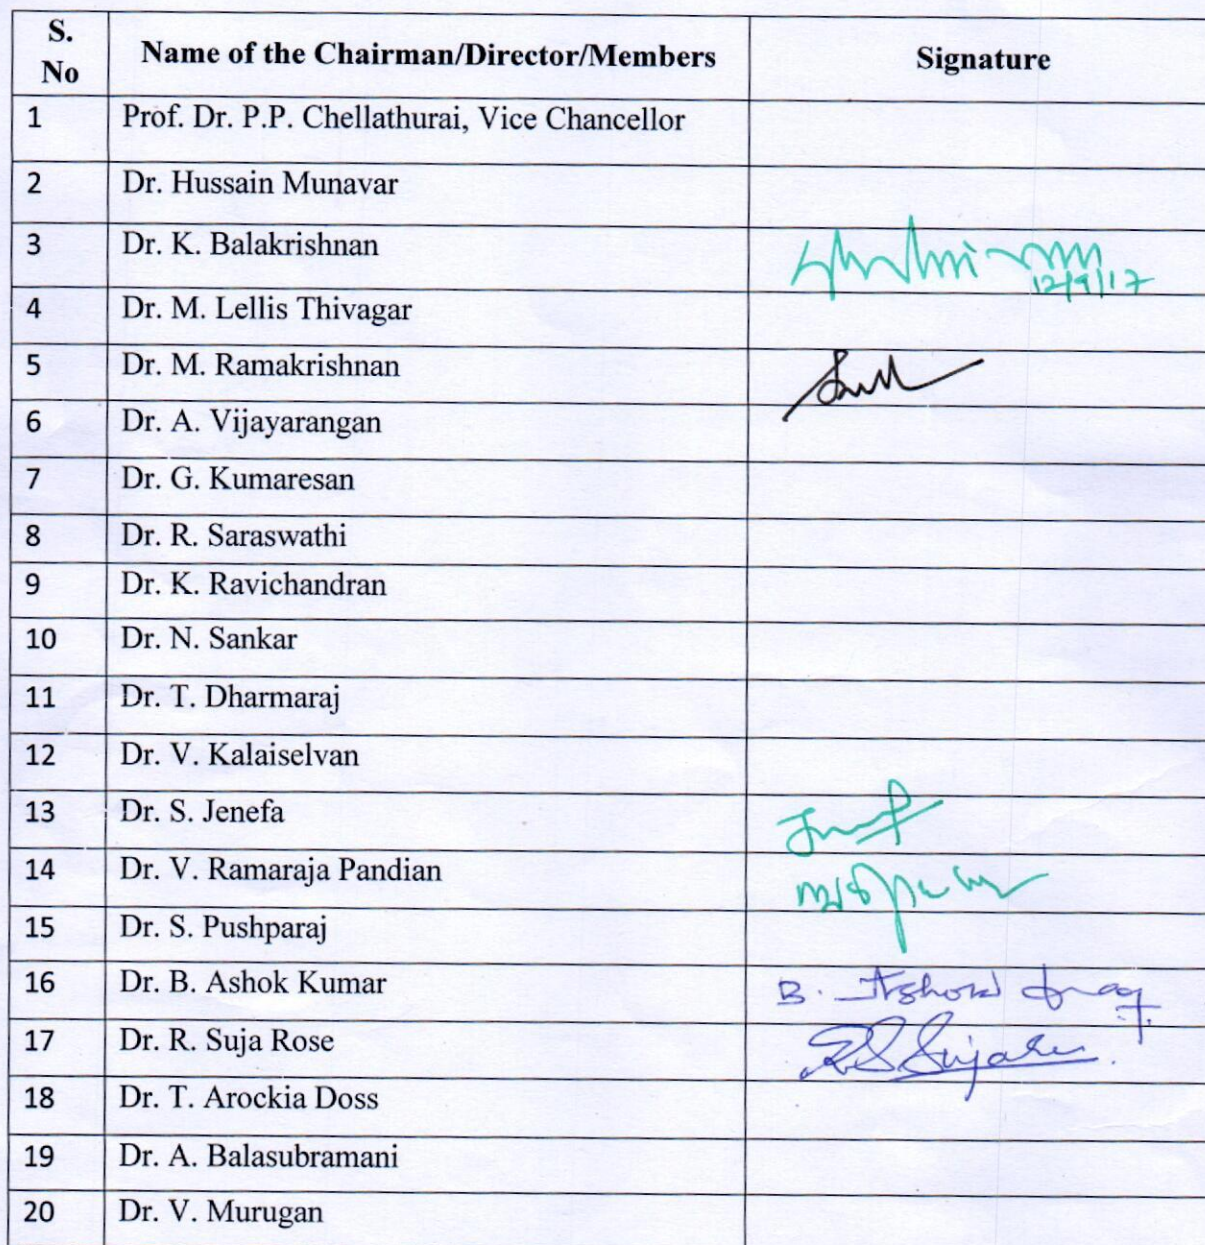 S. No Name of the Chairman/Director/Members Signature
1 Prof. Dr. P.P. Chellathurai, Vice Chancellor
2 Dr. Hussain Munavar
3 Dr. K. Balakrishnan 12/9/17
4 Dr. M. Lellis Thivagar
5 Dr. M. Ramakrishnan
6 Dr. A. Vijayarangan
7 Dr. G. Kumaresan
8 Dr. R. Saraswathi
9 Dr. K. Ravichandran
10 Dr. N. Sankar
11 Dr. T. Dharmaraj
12 Dr. V. Kalaiselvan
13 Dr. S. Jenefa
14 Dr. V. Ramaraja Pandian
15 Dr. S. Pushparaj
16 Dr. B. Ashok Kumar B. Ashok
17 Dr. R. Suja Rose
18 Dr. T. Arockia Doss
19 Dr. A. Balasubramani
20 Dr. V. Murugan